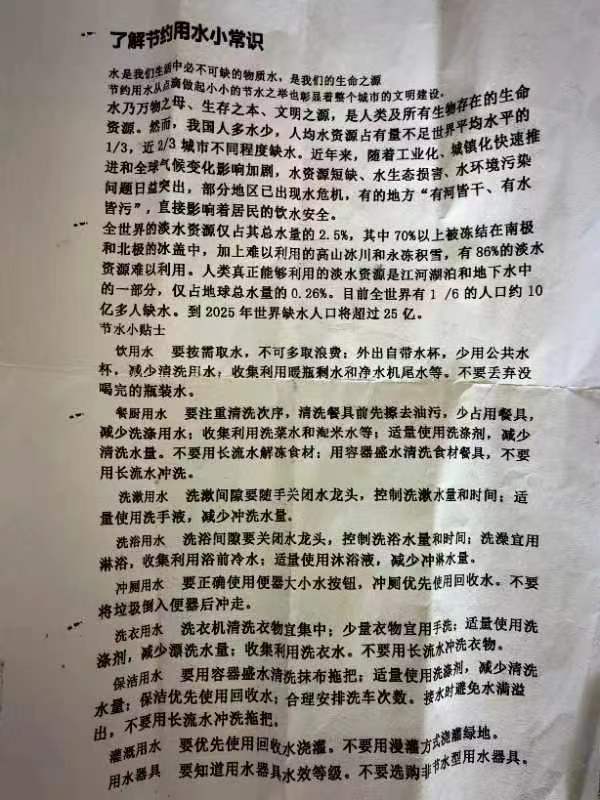 了解节约用水小常识
水是我们生活中必不可缺的物质水，是我们的生命之源
节约用水从点滴做起小小的节水之举也彰显着整个城市的文明建设。
水乃万物之母、生存之本、文明之源，是人类及所有生物存在的生命
资源。然而，我国人多水少，人均水资源占有量不足世界平均水平的
1/3，近2/3城市不同程度缺水。近年来，随着工业化、城镇化快速推
进和全球气候变化影响加剧，水资源短缺、水生态损害、水环境污染
问题日益突出，部分地区已出现水危机，有的地方“有河皆干、有水
皆污”，直接影响着居民的饮水安全。
全世界的淡水资源仅占其总水量的2.5%，其中70%以上被冻结在南极
和北极的冰盖中，加上难以利用的高山冰川和永冻积雪，有86%的淡水
资源难以利用。人类真正能够利用的淡水资源是江河湖泊和地下水中
的一部分，仅占地球总水量的0.26%。目前全世界有1 /6的人口约10
亿多人缺水。到2025年世界缺水人口将超过25亿。
节水小贴士
饮用水 要按需取水，不可多取浪费；外出自带水杯，少用公共水
杯，减少清洗用水；收集利用暖瓶剩水和净水机尾水等。不要丢弃没
喝完的瓶装水。
餐厨用水 要注重清洗次序，清洗餐具前先擦去油污，少占用餐具，
减少洗涤用水；收集利用洗菜水和淘米水等；适量使用洗涤剂，减少
清洗水量。不要用长流水解冻食材；用容器盛水清洗食材餐具，不要
用长流水冲洗。
洗漱用水 洗漱间隙要随手关闭水龙头，控制洗漱水量和时间；适
量使用洗手液，减少冲洗水量。
洗浴用水 洗浴间隙要关闭水龙头，控制洗浴水量和时间；洗澡宜用
淋浴，收集利用浴前冷水；适量使用沐浴液，减少冲淋水量。
冲厕用水 要正确使用便器大小水按钮，冲厕优先使用回收水。不要
将垃圾倒入便器后冲走。
洗衣用水 洗衣机清洗衣物宜集中；少量衣物宜用手洗；适量使用洗
涤剂，减少漂洗水量；收集利用洗衣水。不要用长流水冲洗衣物。
保洁用水 要用容器盛水清洗抹布拖把；适量使用洗涤剂，减少清洗
水量；保洁优先使用回收水；合理安排洗车次数。接水时避免水满溢
出，不要用长流水冲洗拖把。
灌溉用水 要优先使用回收水浇灌。不要用漫灌方式浇灌绿地。
用水器具 要知道用水器具水效等级。不要选购非节水型用水器具。